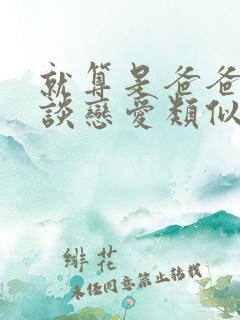 就算是爸爸
談戀愛類似
緋花
未经同意禁止转载